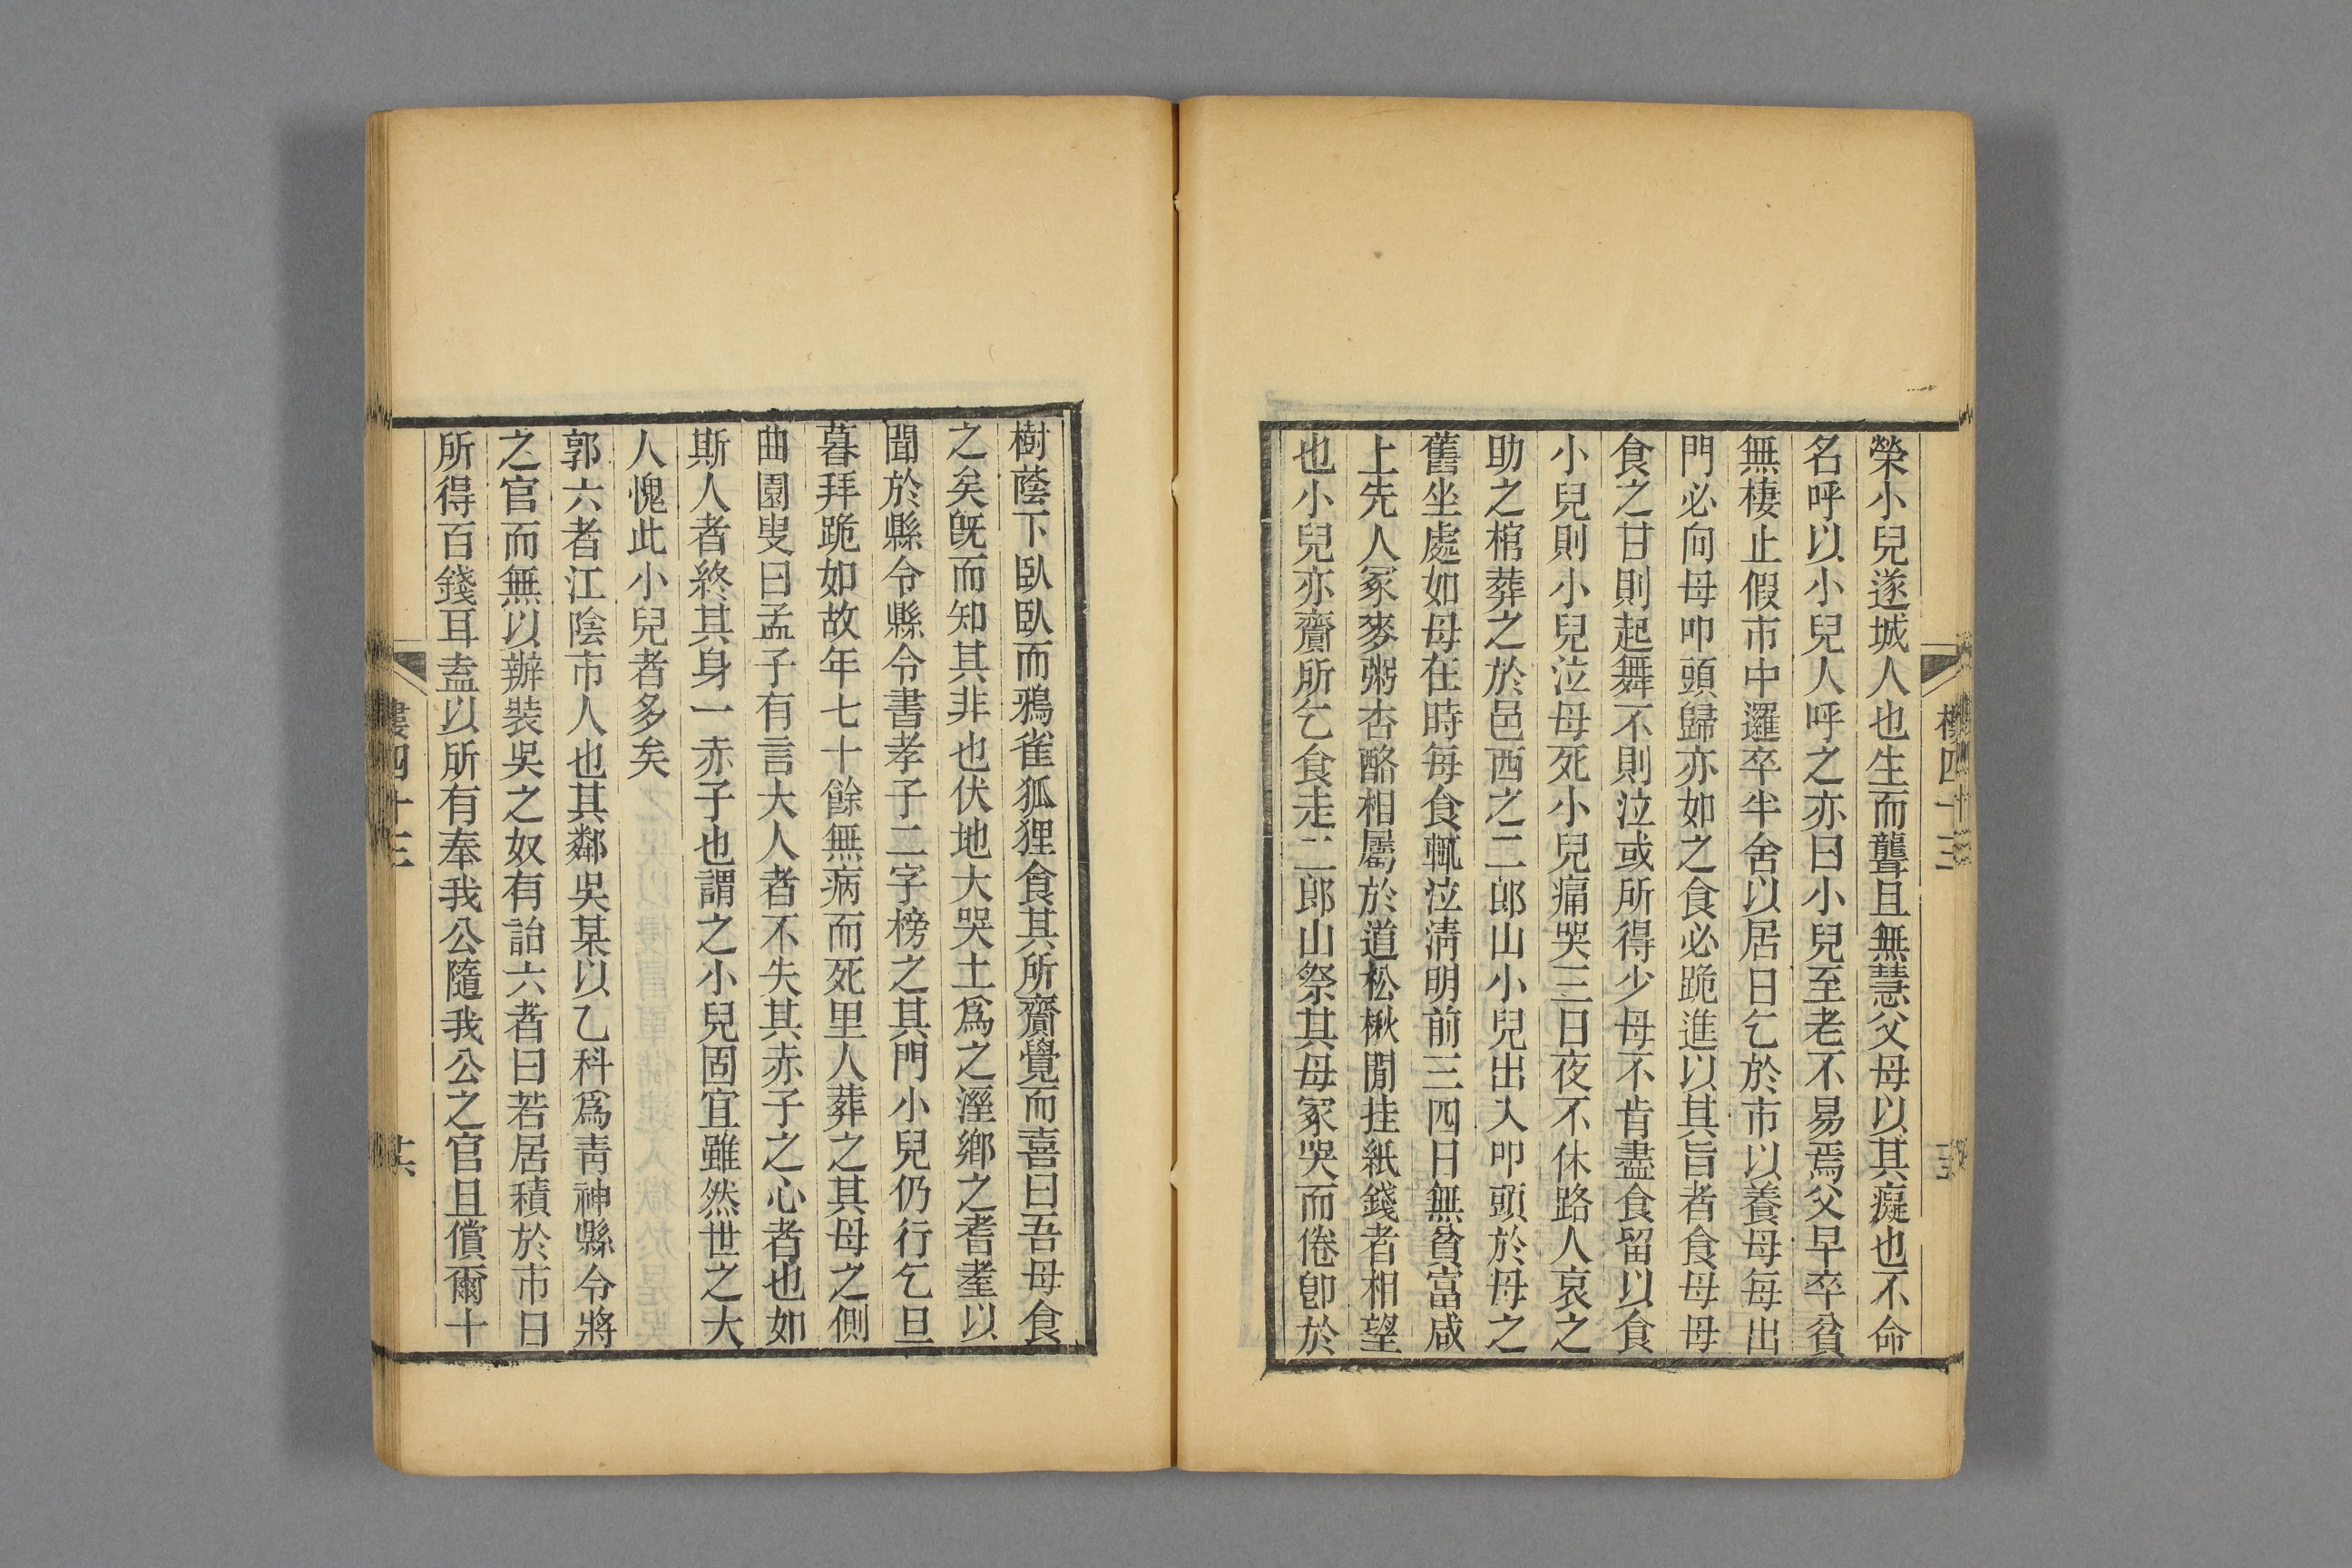 榮小兒遂城人也生而聾且無慧父母以其癡也不命
名呼以小兒人呼之亦曰小兒至老不易焉父早卒貧
無棲止假市中邏卒半舍以居日乞於市以養母每出
門必向母叩頭歸亦如之食必跪進以其旨者食母母
食之甘則起舞不則泣或所得少母不肯盡食留以食
小兒則小兒泣母死小兒痛哭三日夜不休路人哀之
助之棺葬之於邑西之二郎山小兒出入叩頭於母之
舊坐處如母在時每食輒泣淸明前三四日無貧富咸
上先人冢麥粥杏酪相屬於道松楸閒挂紙錢者相望
也小兒亦齎所乞食走二郎山祭其母冢哭而倦卽於
樹蔭下臥臥而鴉雀狐狸食其所齎覺而喜曰吾母食
之矣旣而知其非也伏地大哭土爲之溼鄕之耆耋以
聞於縣令縣令書孝子二字榜之其門小兒仍行乞旦
暮拜跪如故年七十餘無病而死里人葬之其母之側
曲園叟曰孟子有言大人者不失其赤子之心者也如
斯人者終其身一赤子也謂之小兒固宜雖然世之大
人愧此小兒者多矣
郭六者江陰市人也其鄰吳某以乙科爲靑神縣令將
之官而無以辦裝吳之奴有詒六者曰若居積於市日
所得百錢耳盍以所有奉我公隨我公之官且償爾十
樓四十三